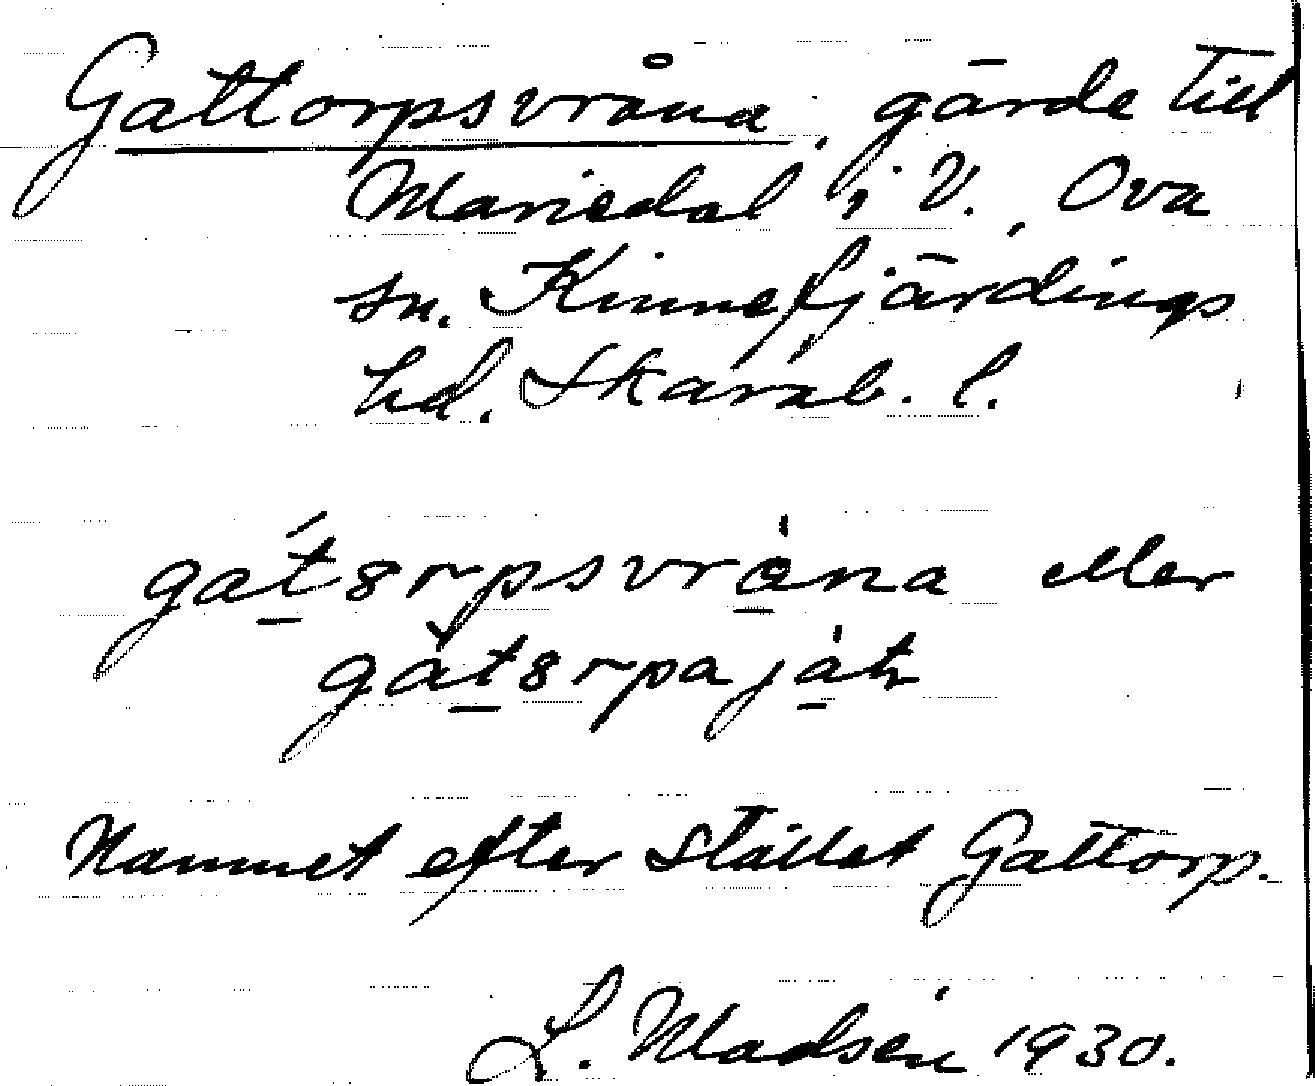 Gattorpsvråna, gärde till
Mariedal i V. Ova
sn. Kinnefjärdings
hd. Skarab. l.
gat8rpsvråna eller
gàt8rpajátr
Namnet efter stället Gattorp.
L. Madsén 1930.